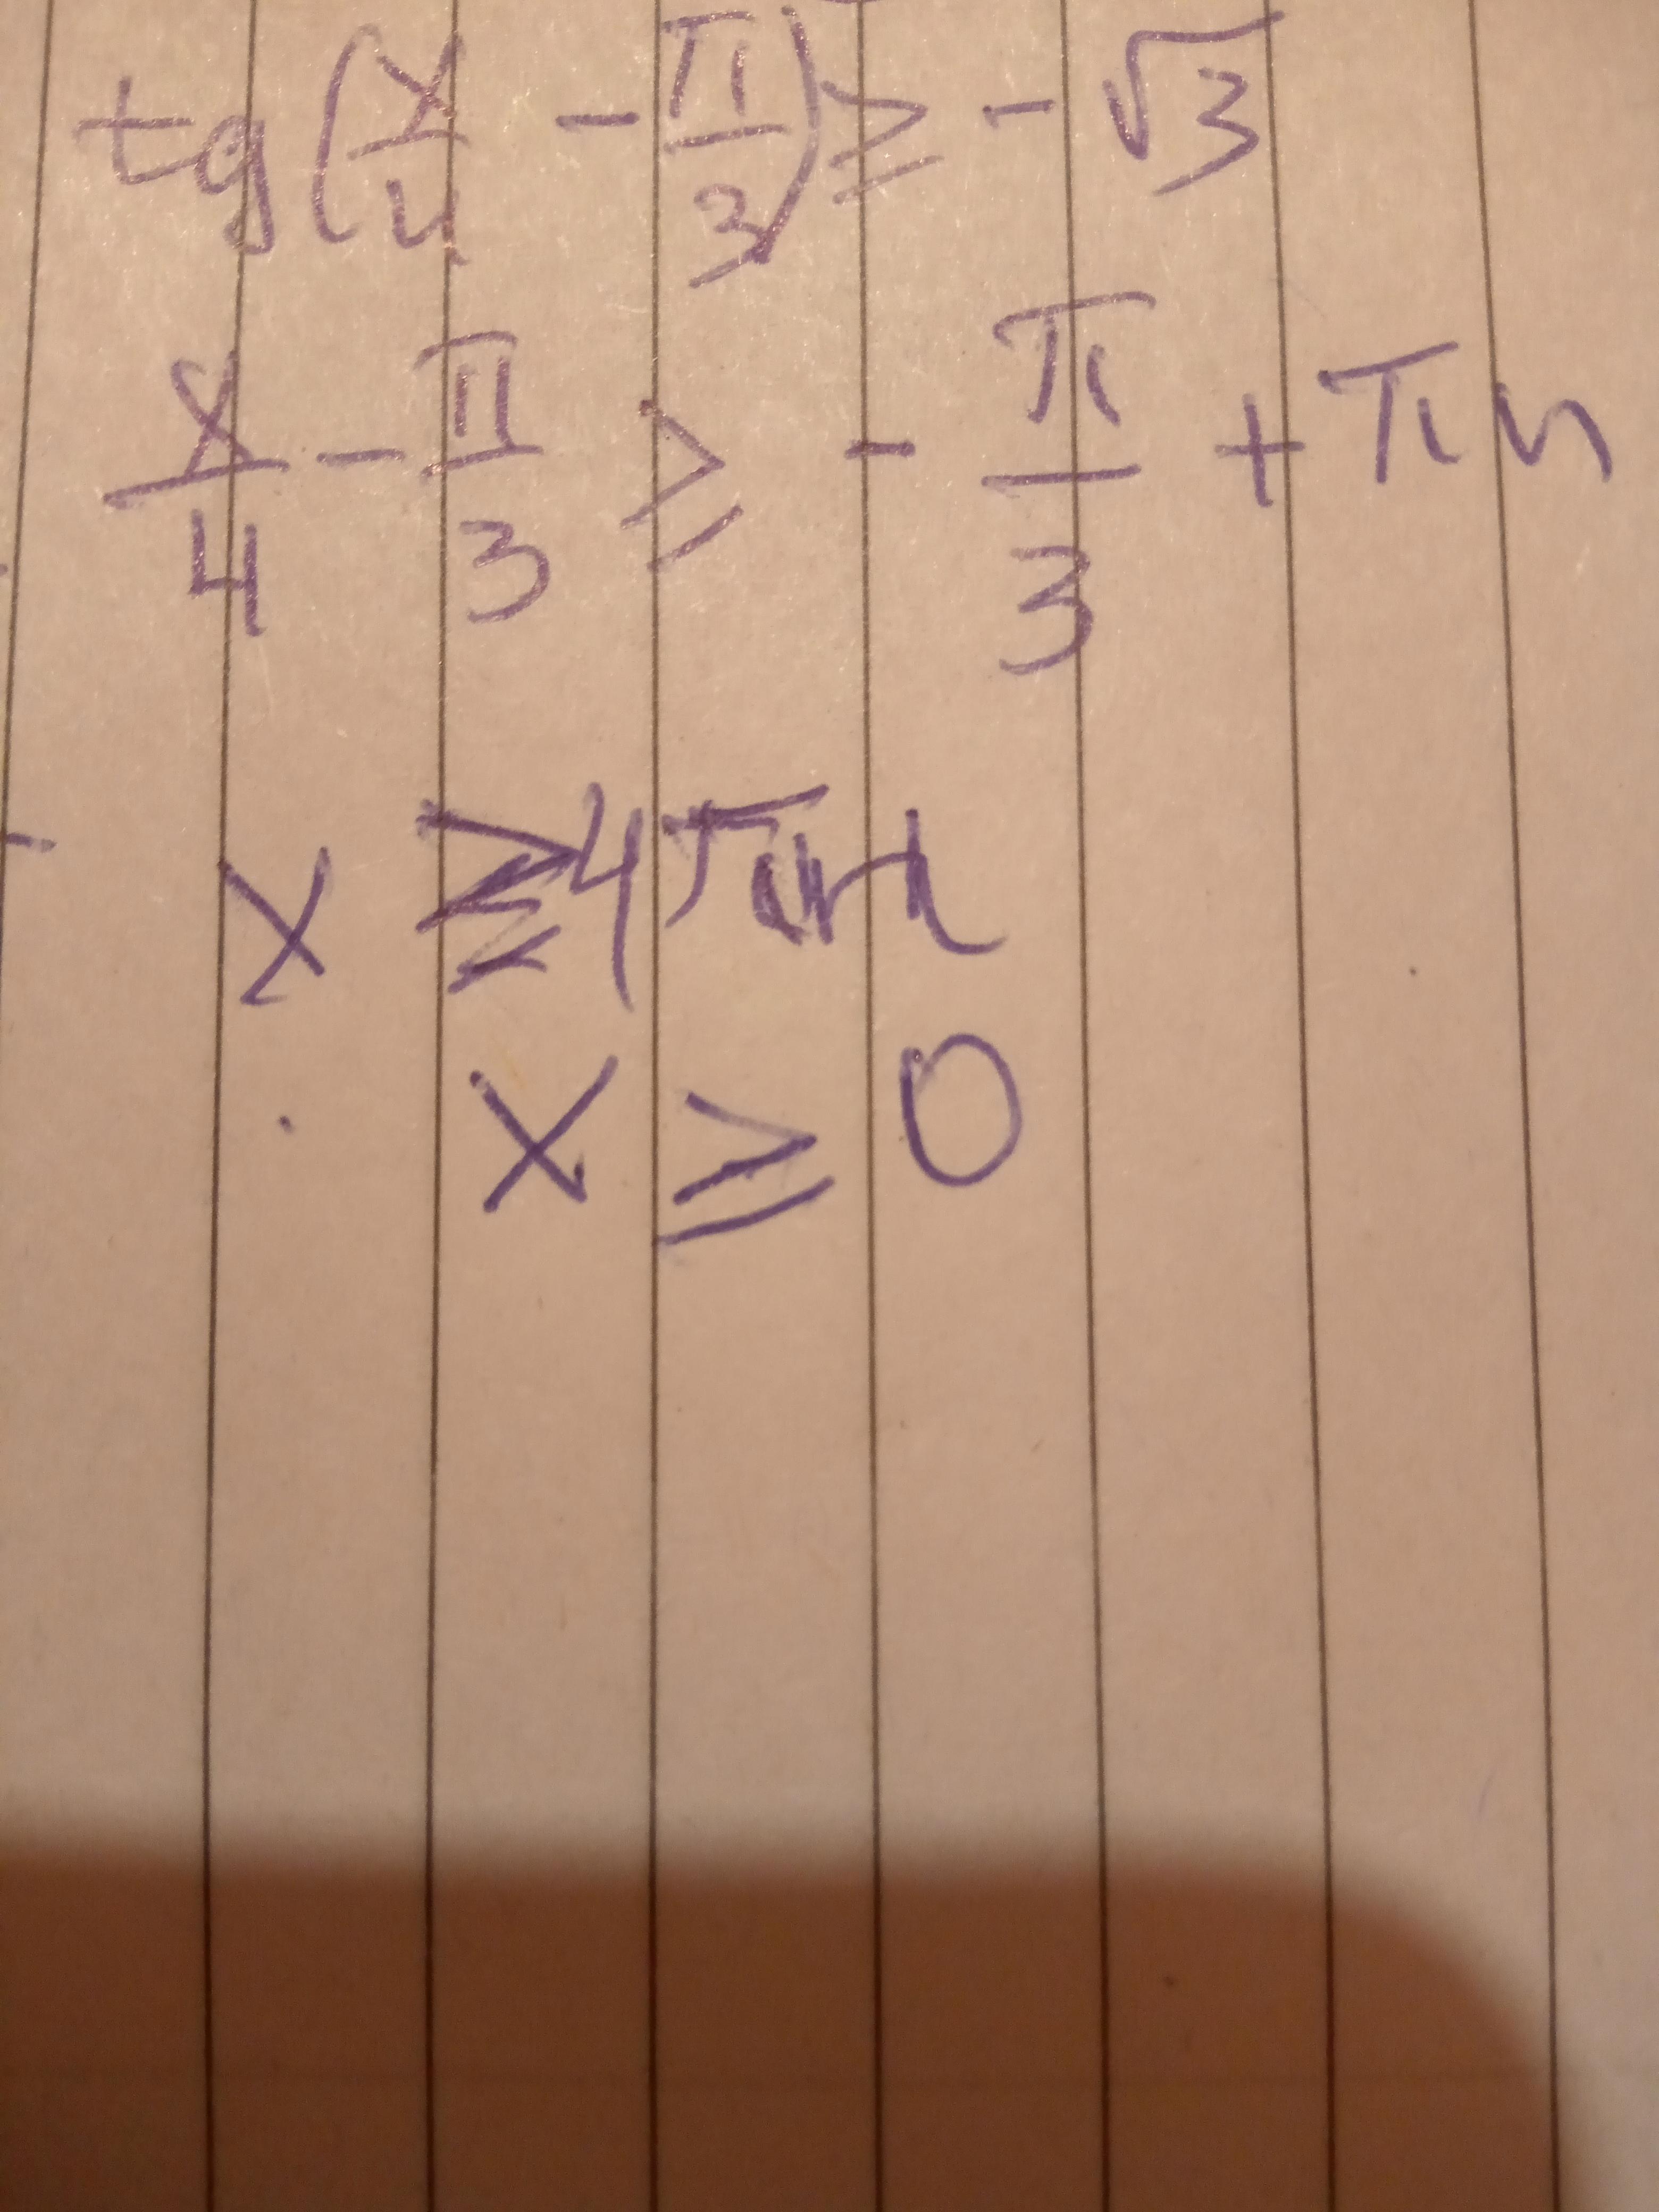 tg(x/4 - π/3) ≥ - √3
x/4 - π/3 ≥ - π/3 + πn
x ≥ 4πn
x ≥ 0